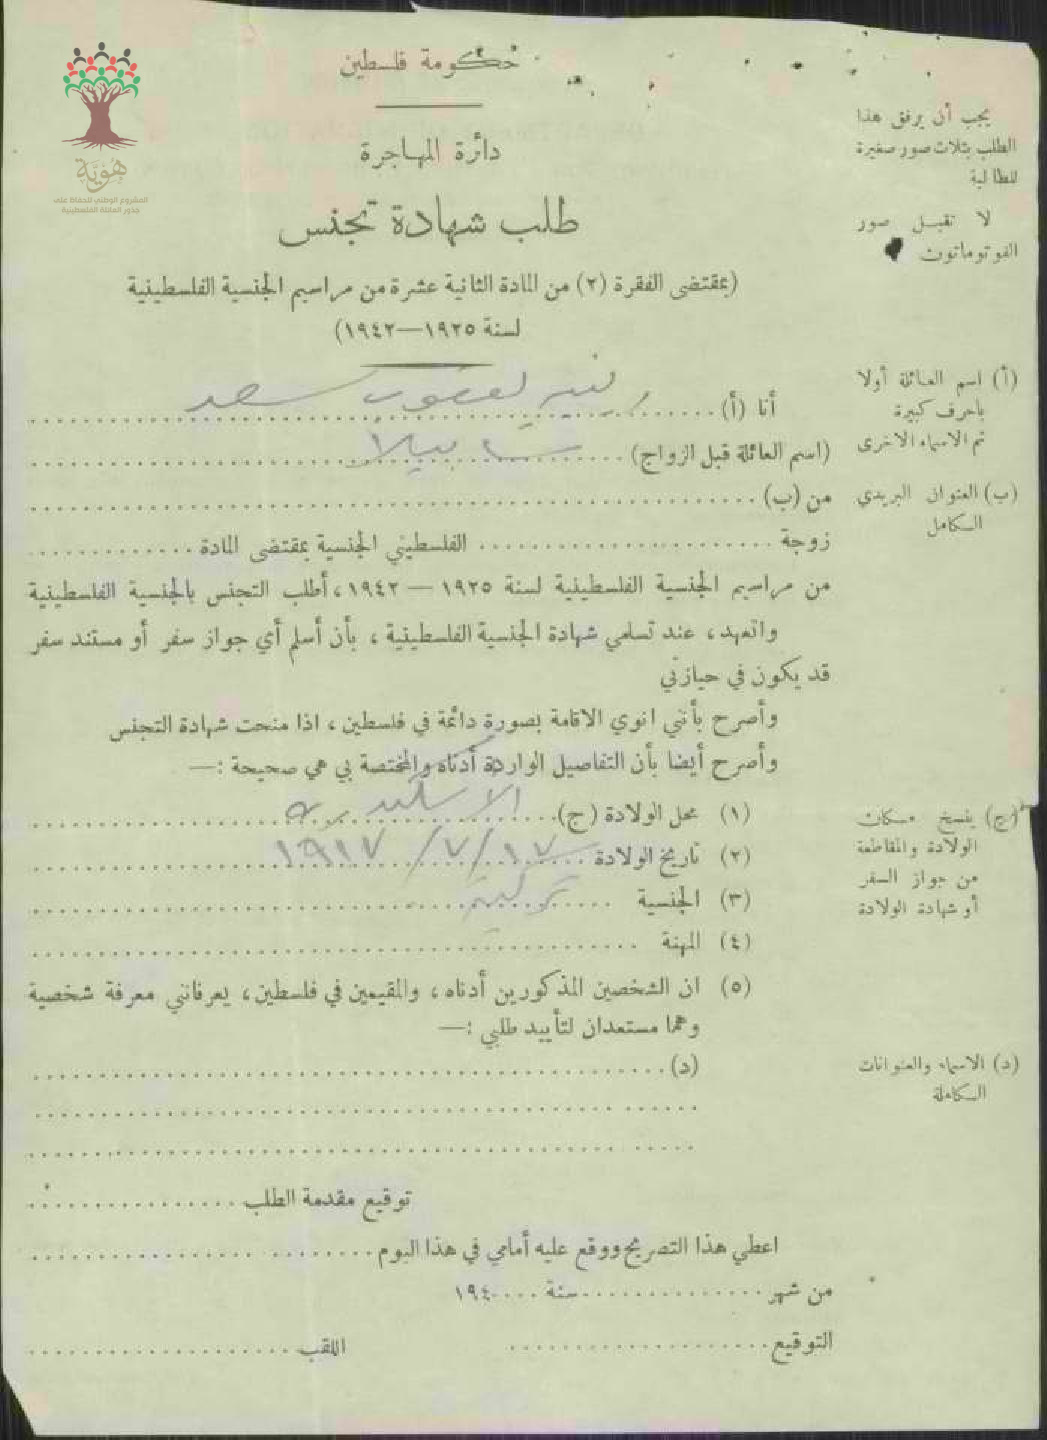 هُوِيَّة
المشروع الوطني للحفاظ على
جذور العائلة الفلسطينية
حكومة فلسطين
دائرة المهاجرة
طلب شهادة تجنس
(بمقتضى الفقرة (٢) من المادة الثانية عشرة من مراسيم الجنسية الفلسطينية
لسنة ١٩٢٥—١٩٤٢)
يجب أن يرفق هذا
الطلب بثلاث صور صغيرة
للطالبة
لا تقبل صور
الفوتوماتون
(أ) اسم العائلة أولا
باحرف كبيرة
ثم الاسماء الاخرى
أنا (أ) يعقوب سعد
(اسم العائلة قبل الزواج)
(ب) العنوان البريدي
الكامل
من (ب)
زوجة الفلسطيني الجنسية بمقتضى المادة
من مراسيم الجنسية الفلسطينية لسنة ١٩٢٥ — ١٩٤٢، أطلب التجنس بالجنسية الفلسطينية
واتعهد، عند تسلمي شهادة الجنسية الفلسطينية، بأن أسلم أي جواز سفر أو مستند سفر
قد يكون في حيازتي
وأصرح بأنني انوي الاقامة بصورة دائمة في فلسطين، اذا منحت شهادة التجنس
وأصرح أيضا بأن التفاصيل الواردة أدناه والمختصة بي هي صحيحة :—
(١) محل الولادة (ج) الاسكندرية
(ج) ينسخ مكان
الولادة والمقاطعة
من جواز السفر
أو شهادة الولادة
(٢) تاريخ الولادة ١٧/٧/١٩١٧
(٣) الجنسية تركية
(٤) المهنة
(٥) ان الشخصين المذكورين أدناه، والمقيمين في فلسطين، يعرفانني معرفة شخصية
وهما مستعدان لتأييد طلبي :—
(د) الاسماء والعنوانات
الكاملة
(د)
توقيع مقدمة الطلب
اعطي هذا التصريح ووقع عليه أمامي في هذا اليوم
من شهر سنة ١٩٤
التوقيع اللقب